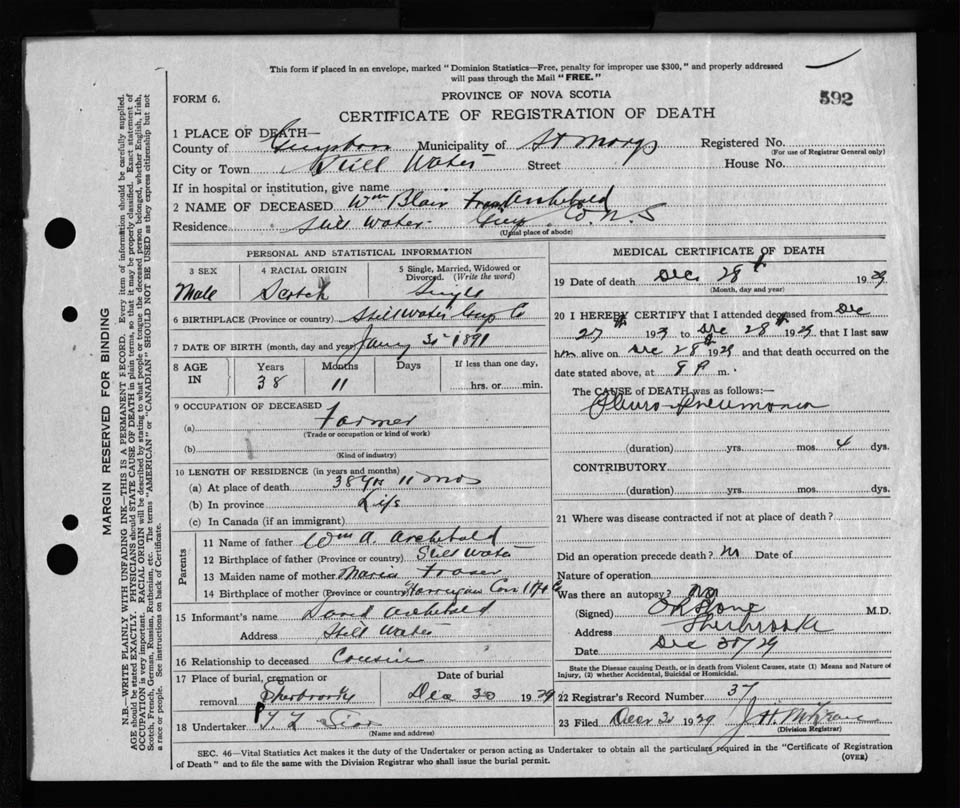 This form if placed in an envelope, marked "Dominion Statistics—Free, penalty for improper use $300," and properly addressed
will pass through the Mail "FREE."
FORM 6.
PROVINCE OF NOVA SCOTIA
592
CERTIFICATE OF REGISTRATION OF DEATH
1 PLACE OF DEATH—
County of Guysboro Municipality of St Marys Registered No.
(For use of Registrar General only)
City or Town Still Water Street House No.
If in hospital or institution, give name
2 NAME OF DECEASED Wm Blair Fraser Archibald
Residence Still Water Guy Co. N.S
(Usual place of abode)
PERSONAL AND STATISTICAL INFORMATION
3 SEX
Male
4 RACIAL ORIGIN
Scotch
5 Single, Married, Widowed or
Divorced. (Write the word)
Single
6 BIRTHPLACE (Province or country) Still Water Guy Co
7 DATE OF BIRTH (month, day and year) 1891
8 AGE IN
Years
38
Months
11
Days
If less than one day,
hrs. or min.
9 OCCUPATION OF DECEASED
(a) Farmer
(Trade or occupation or kind of work)
(b)
(Kind of industry)
10 LENGTH OF RESIDENCE (in years and months)
(a) At place of death 38 yrs 11 mos
(b) In province
(c) In Canada (if an immigrant)
Parents
11 Name of father Wm A. Archibald
12 Birthplace of father (Province or country) Still Water
13 Maiden name of mother Maria Fraser
14 Birthplace of mother (Province or country)
15 Informant's name David Archibald
Address Still Water
16 Relationship to deceased Cousin
17 Place of burial, cremation or
removal Sherbrooke
Date of burial
Dec 30 1929
18 Undertaker
(Name and address)
MEDICAL CERTIFICATE OF DEATH
19 Date of death Dec 28th 1929
(Month, day and year)
20 I HEREBY CERTIFY that I attended deceased from Dec
27th 192 to Dec 28th 1929, that I last saw
him alive on Dec 28th 1929 and that death occurred on the
date stated above, at 9 P m.
The CAUSE of DEATH was as follows:—
Pleuro-Pneumonia
(duration) yrs. mos. 4 dys.
CONTRIBUTORY
(duration) yrs. mos. dys.
21 Where was disease contracted if not at place of death?
Did an operation precede death? No Date of
Nature of operation
Was there an autopsy? No
(Signed) M.D.
Address Sherbrooke
Date Dec 30/29
State the Disease causing Death, or in death from Violent Causes, state (1) Means and Nature of
Injury, (2) whether Accidental, Suicidal or Homicidal.
22 Registrar's Record Number 37
23 Filed Decr 1929
(Division Registrar)
SEC. 46—Vital Statistics Act makes it the duty of the Undertaker or person acting as Undertaker to obtain all the particulars required in the "Certificate of Registration
of Death" and to file the same with the Division Registrar who shall issue the burial permit.
(OVER)
MARGIN RESERVED FOR BINDING
N.B.—WRITE PLAINLY WITH UNFADING INK—THIS IS A PERMANENT RECORD. Every item of information should be carefully supplied.
AGE should be stated EXACTLY. PHYSICIANS should STATE CAUSE OF DEATH in plain terms, so that it may be properly classified. Exact statement of
OCCUPATION is very important. RACIAL ORIGIN will be described by stating to what people or tongue the deceased person belonged, whether English, Irish,
Scotch, French, German, Russian, Ruthenian, etc. The terms "AMERICAN" or "CANADIAN" SHOULD NOT BE USED as they express citizenship but not
a race or people. See instructions on back of Certificate.